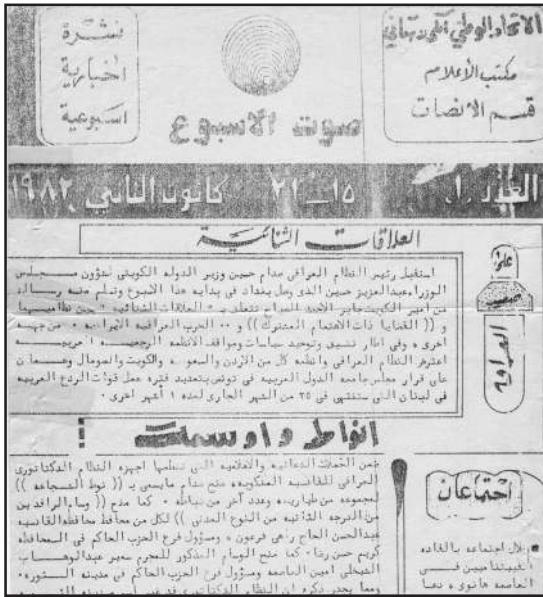 الاتحاد الوطني الكردستاني
مكتب الأعلام
قسم الانصات
صوت الاسبوع
نشرة
اخبارية
اسبوعية
العدد ١٠ ١٥_٢١ كانون الثاني ١٩٨٢
العلاقات الثنائية
استقبل رئيس النظام العراقي صدام حسين وزير الدولة الكويتي لشؤون مجلس
الوزراء عبدالعزيز حسين الذي وصل بغداد في بداية هذا الاسبوع وتسلم منه رسالة
من امير الكويت جابر الاحمد الصباح تتعلق بـ " العلاقات الثنائية " بين نظاميهما
و (( القضايا ذات الاهتمام المشترك )) و ٠٠ الحرب العراقية الايرانية ٠ من جهة
اخرى وفي اطار تنسيق وتوحيد سياسات ومواقف الانظمة الرجعية العربية
اعترض النظام العراقي وانظمة كل من الاردن والسعودية والكويت والصومال وعمان
على قرار مجلس جامعة الدول العربية في تونس بتمديد فترة عمل قوات الردع العربية
في لبنان التي ستنتهي في ٢٥ من الشهر الجاري لمدة ٦ أشهر اخرى ٠
العراق
انواط واوسمة !!
ضمن الحملات الدعائية والاعلامية التي تنظمها اجهزة النظام الدكتاتوري
العراقي للقادسية المنكوبة منح صدام مايسمى بـ (( نوط الشجاعة ))
لمجموعة من طياريه وعدد آخر من ضباطه ٠ كما منح (( وسام الرافدين
من الدرجة الثانية من النوع المدني )) لكل من محافظ محافظة القادسية
عبدالحسن الحاج راهي فرعون و مسؤول فرع الحزب الحاكم في المحافظة
كريم حسن رضا ٠ كما منح الوسام المذكور للمجرم سمير عبدالوهاب
الشيخلي امين العاصمة ومسؤول فرع الحزب الحاكم في مدينة الثورة ٠
ومما يجدر ذكره ان النظام الدكتاتوري
اجتماعان
خلال اجتماعه بالقادة
الفيتناميين في
العاصمة هانوي دعا